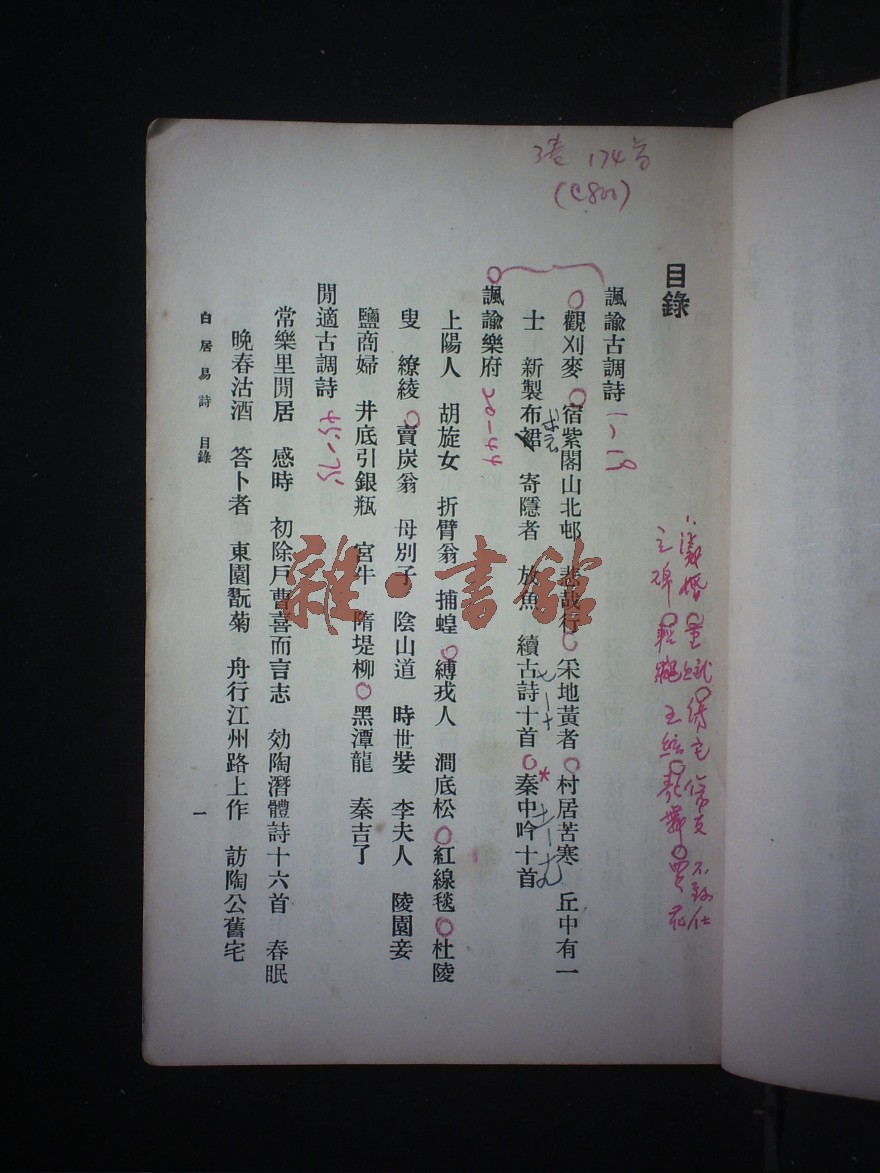 174首
(C800)
目錄
諷諭古調詩 1-19
觀刈麥 宿紫閣山北邨 悲哉行 采地黃者 村居苦寒 丘中有一
士 新製布裙 寄隱者 放魚 續古詩十首 秦中吟十首
諷諭樂府 20-44
上陽人 胡旋女 折臂翁 捕蝗 縛戎人 澗底松 紅線毯 杜陵
叟 繚綾 賣炭翁 母別子 陰山道 時世裝 李夫人 陵園妾
鹽商婦 井底引銀瓶 官牛 隋堤柳 黑潭龍 秦吉了
閒適古調詩 45-75
常樂里閒居 感時 初除戶曹喜而言志 効陶潛體詩十六首 春眠
晚春沽酒 答卜者 東園翫菊 舟行江州路上作 訪陶公舊宅
白居易詩 目錄
一
議婚 重賦 傷宅 傷友 不致仕
立碑 輕肥 五絃 歌舞 買花
雜·書館